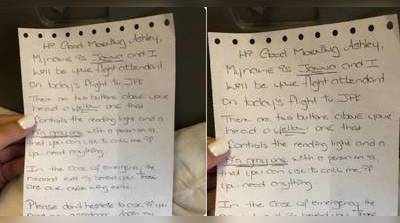 Hi Good Morning Ashley,
My name is Janna and I
will be your flight attendant
on today's flight to JFK
There are two buttons above your
head a yellow one that
controls the reading light and a
big gray one with a person on it
that you can use to call me if
you need anything.
In the case of emergency the
nearest exit is behind you. There
are
Please don't hesitate to ask if you
Hi Good Morning Ashley,
My name is Janna and I
will be your flight attendant
on today's flight to JFK
There are two buttons above your
head a yellow one that
controls the reading light and a
big gray one with a person on it,
that you can use to call me if
you need anything
In the case of emergency the